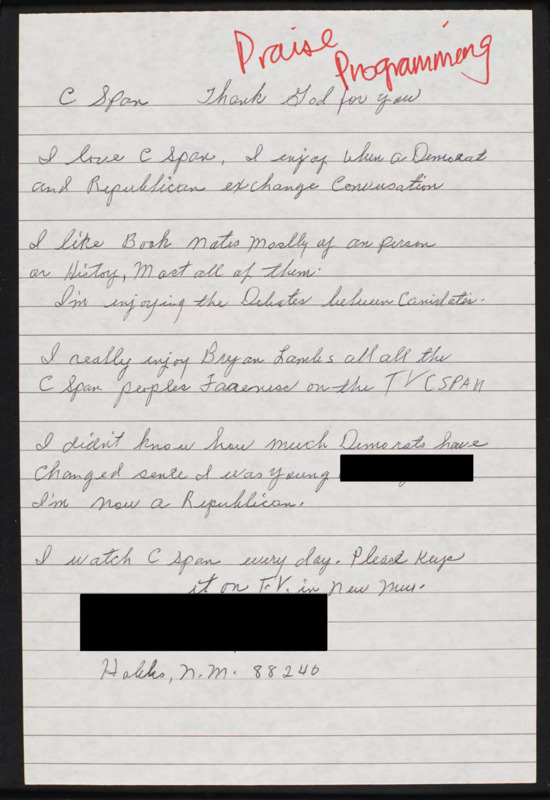 Praise
Programming
C Span Thank God for you
I love C Span, I enjoy when a Democrat
and Republican exchange Conversation
I like Book Notes Mostly of an person
or History, Most all of them.
I'm enjoying the Debates between Canidates.
I really enjoy Bryan Lambs all all the
C Span peoples Faareness on the TV CSPAN
I didn't know how much Demorats have
changed sense I was young
I'm now a Republican.
I watch C span every day. Please keep
it on T.V. in New Mex.
Hobbs, N.M. 88240